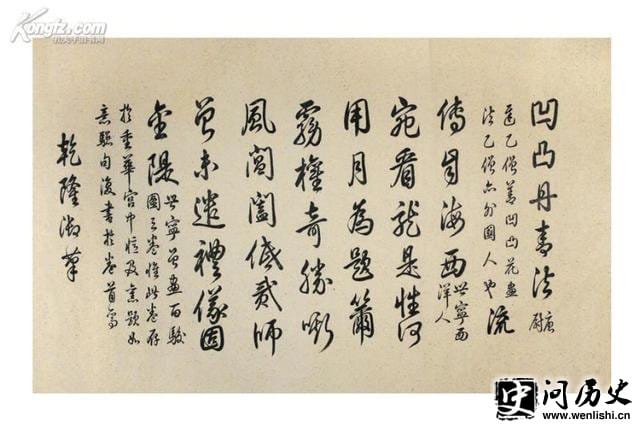 Kongfz.com
孔夫子旧书网
凹凸丹青法唐尉
遲乙僧善凹凸花畫
法乙僧亦外國人也流
傳自海西世寧西
洋人
宛看龍是性何
用月為題
霧權奇勝嘶
風閶闔低貳師
曾未遣禮儀圖
隄世寧曾畫百駿
圖三卷惟此卷存
於重華宮中及題如
句復書於卷首焉
乾隆御筆
问历史
www.wenlishi.cn